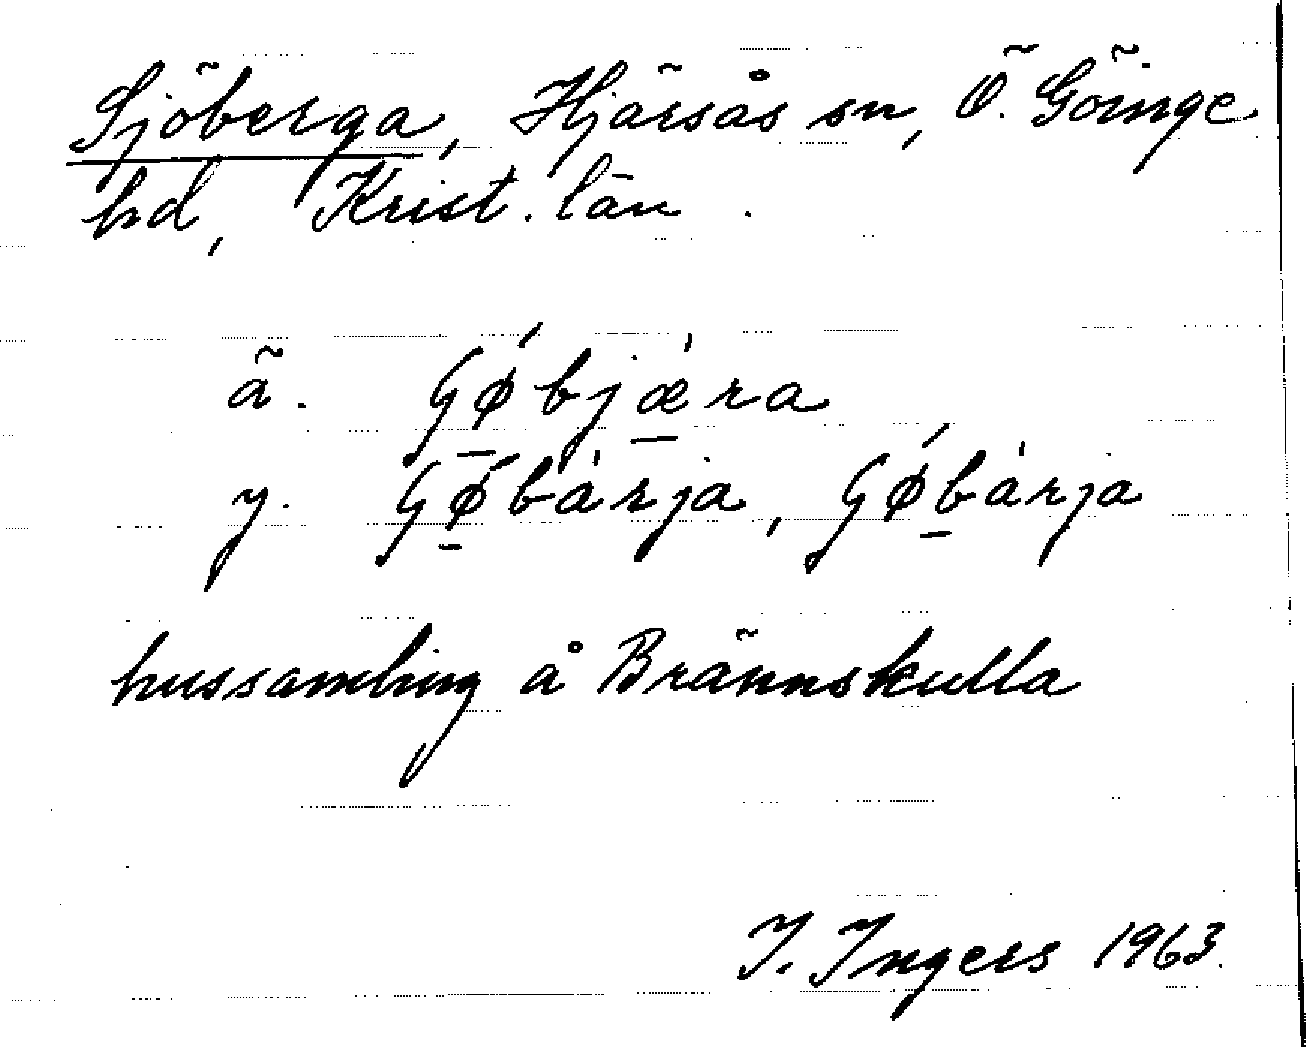 Sjöberga, Hjärsås sn, Ö. Göinge
hd, Krist. län.
ä. Gǿbjǽra
y. Gǿbàrja, Gǿbàrja
hussamling å Brännskulla
I. Ingers 1963.